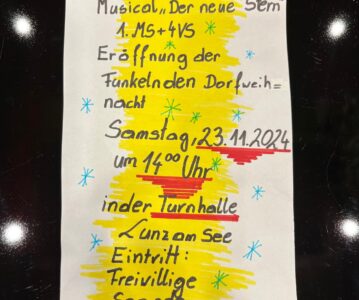 Musical „Der neue Stern"
1. MS + 4VS
Eröffnung der
Funkelnden Dorfweih=
nacht
Samstag, 23.11.2024
um 14⁰⁰ Uhr
in der Turnhalle
Lunz am See
Eintritt:
Freivillige